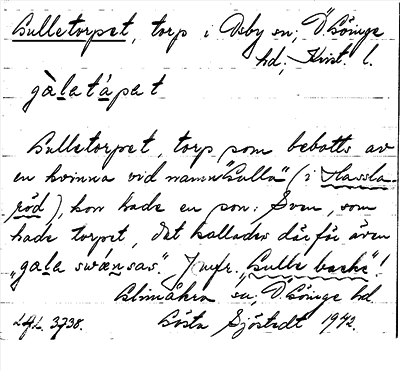 Gulletorpet, torp i Oeby sn; Ö Göinge
hd; Krist. l.
gàlatápat
Gulletorpet, torp som bebotts av
en kvinna vid namn "Gulla" (i Hassla-
röd), hon hade en son: Sven, som
hade torpet, det kallades därför även
"gala swænsas." Jmfr. "Gulle backe"!
Glimåkra sn; Ö Göinge hd.
LAL. 3738. Gösta Sjöstedt 1942.